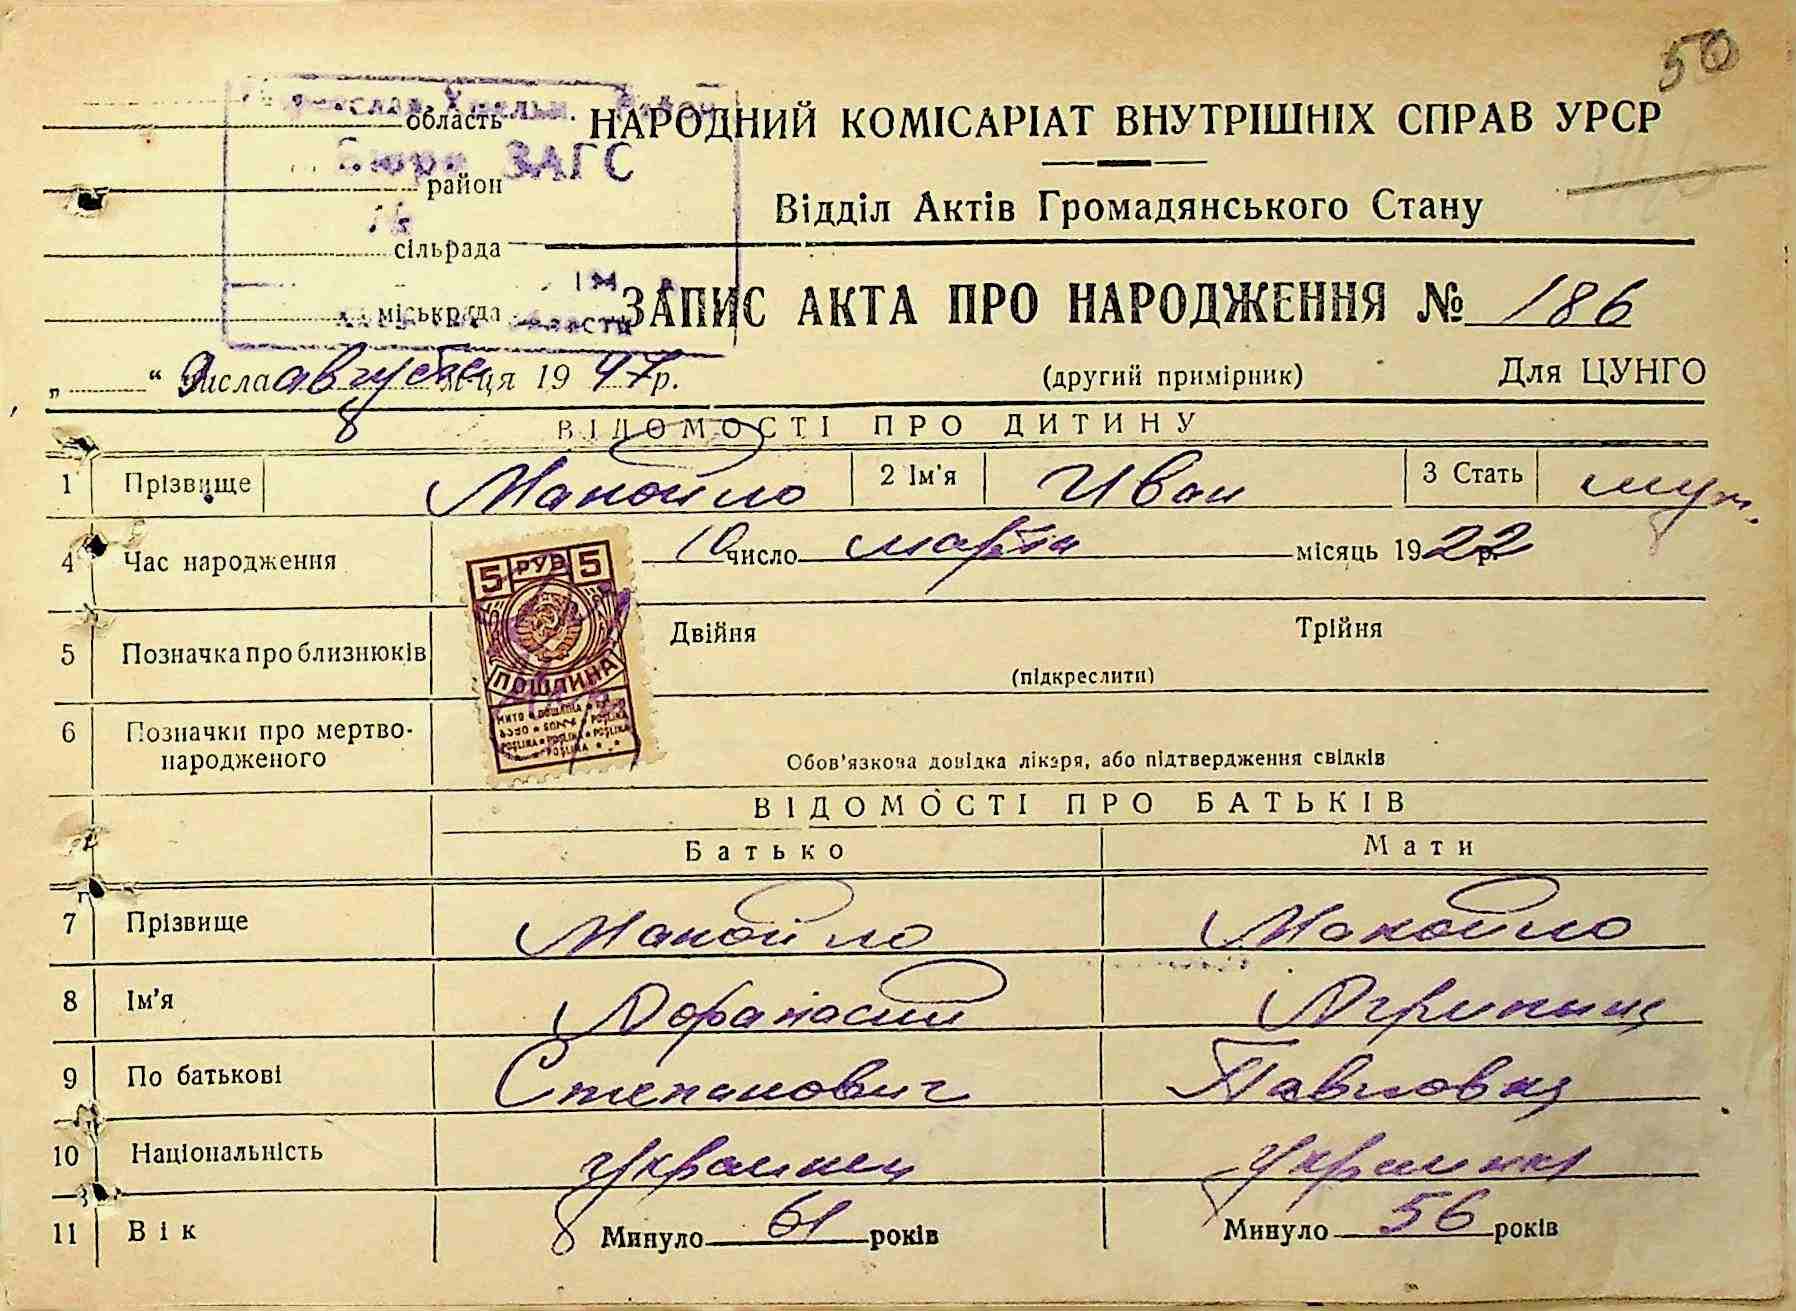 50
область НАРОДНИЙ КОМІСАРІАТ ВНУТРІШНІХ СПРАВ УРСР
Бюро ЗАГС
район
Відділ Актів Громадянського Стану
сільрада
міськрада
ЗАПИС АКТА ПРО НАРОДЖЕННЯ № 186
„ “ 9 числа августа м-ця 1947 р. (другий примірник) Для ЦУНГО
ВІДОМОСТІ ПРО ДИТИНУ
1 Прізвище Манойло 2 Ім'я Иван 3 Стать муж.
4 Час народження 10 число марта місяць 1922 р.
5 РУБ 5
ПОШЛИНА
5 Позначка про близнюків Двійня Трійня
(підкреслити)
6 Позначки про мертво-
народженого
Обов'язкова довідка лікаря, або підтвердження свідків
ВІДОМОСТІ ПРО БАТЬКІВ
Батько Мати
7 Прізвище Манойло Манойло
8 Ім'я Афанасий
9 По батькові Степанович Павловна
10 Національність украинец украинка
11 Вік Минуло 61 років Минуло 56 років